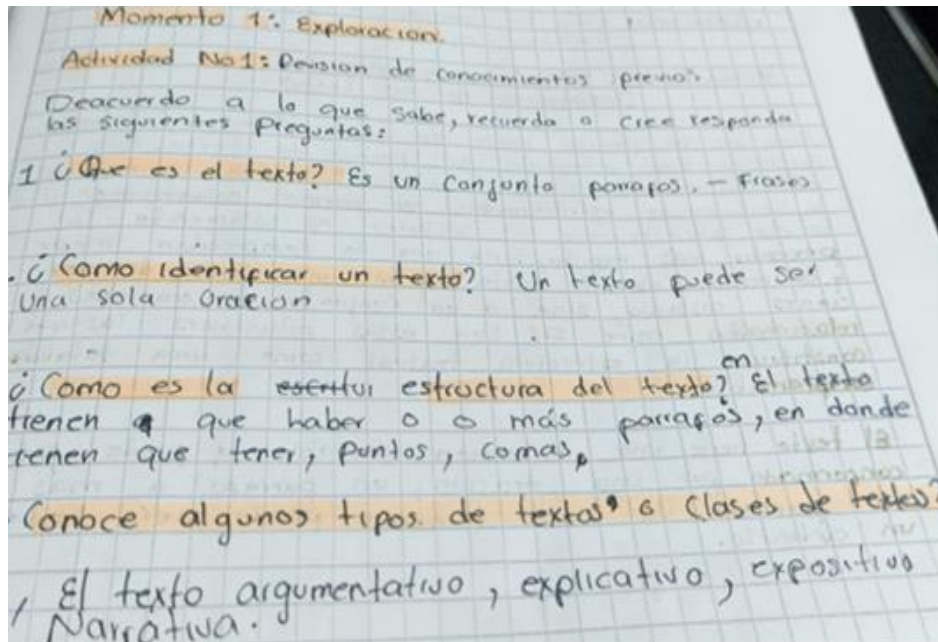 Momento 1: Exploracion.
Actividad No1: Revision de conocimientos previos.
Deacuerdo a lo que sabe, recuerda o cree responda
las siguientes Preguntas:
1 ¿Que es el texto? Es un Conjunto parrafos. - Frases
. ¿Como identificar un texto? Un texto puede ser
Una sola Oracion
¿Como es la estructura del texto? en El texto
tienen que haber o o más parrafos, en donde
tienen que tener, puntos, comas,
Conoce algunos tipos de textos o Clases de textos?
, El texto argumentativo, explicativo, expositivo
Narrativa.